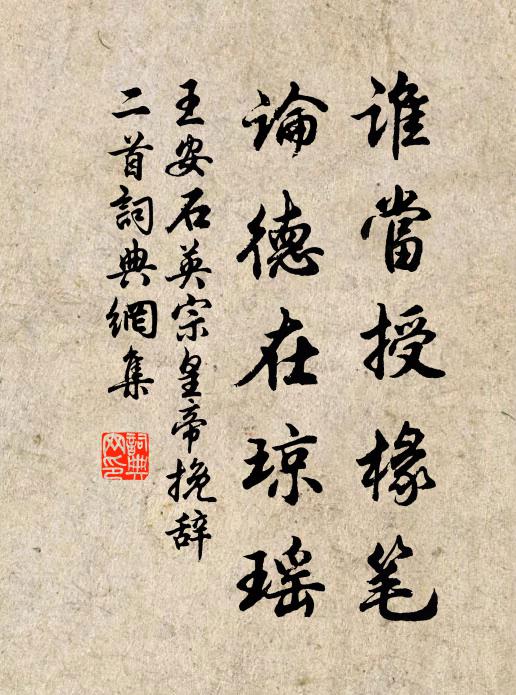 誰當授椽笔
論德在琼瑶
王安石英宗皇帝挽辞
二首詞典網集
詞典
网印